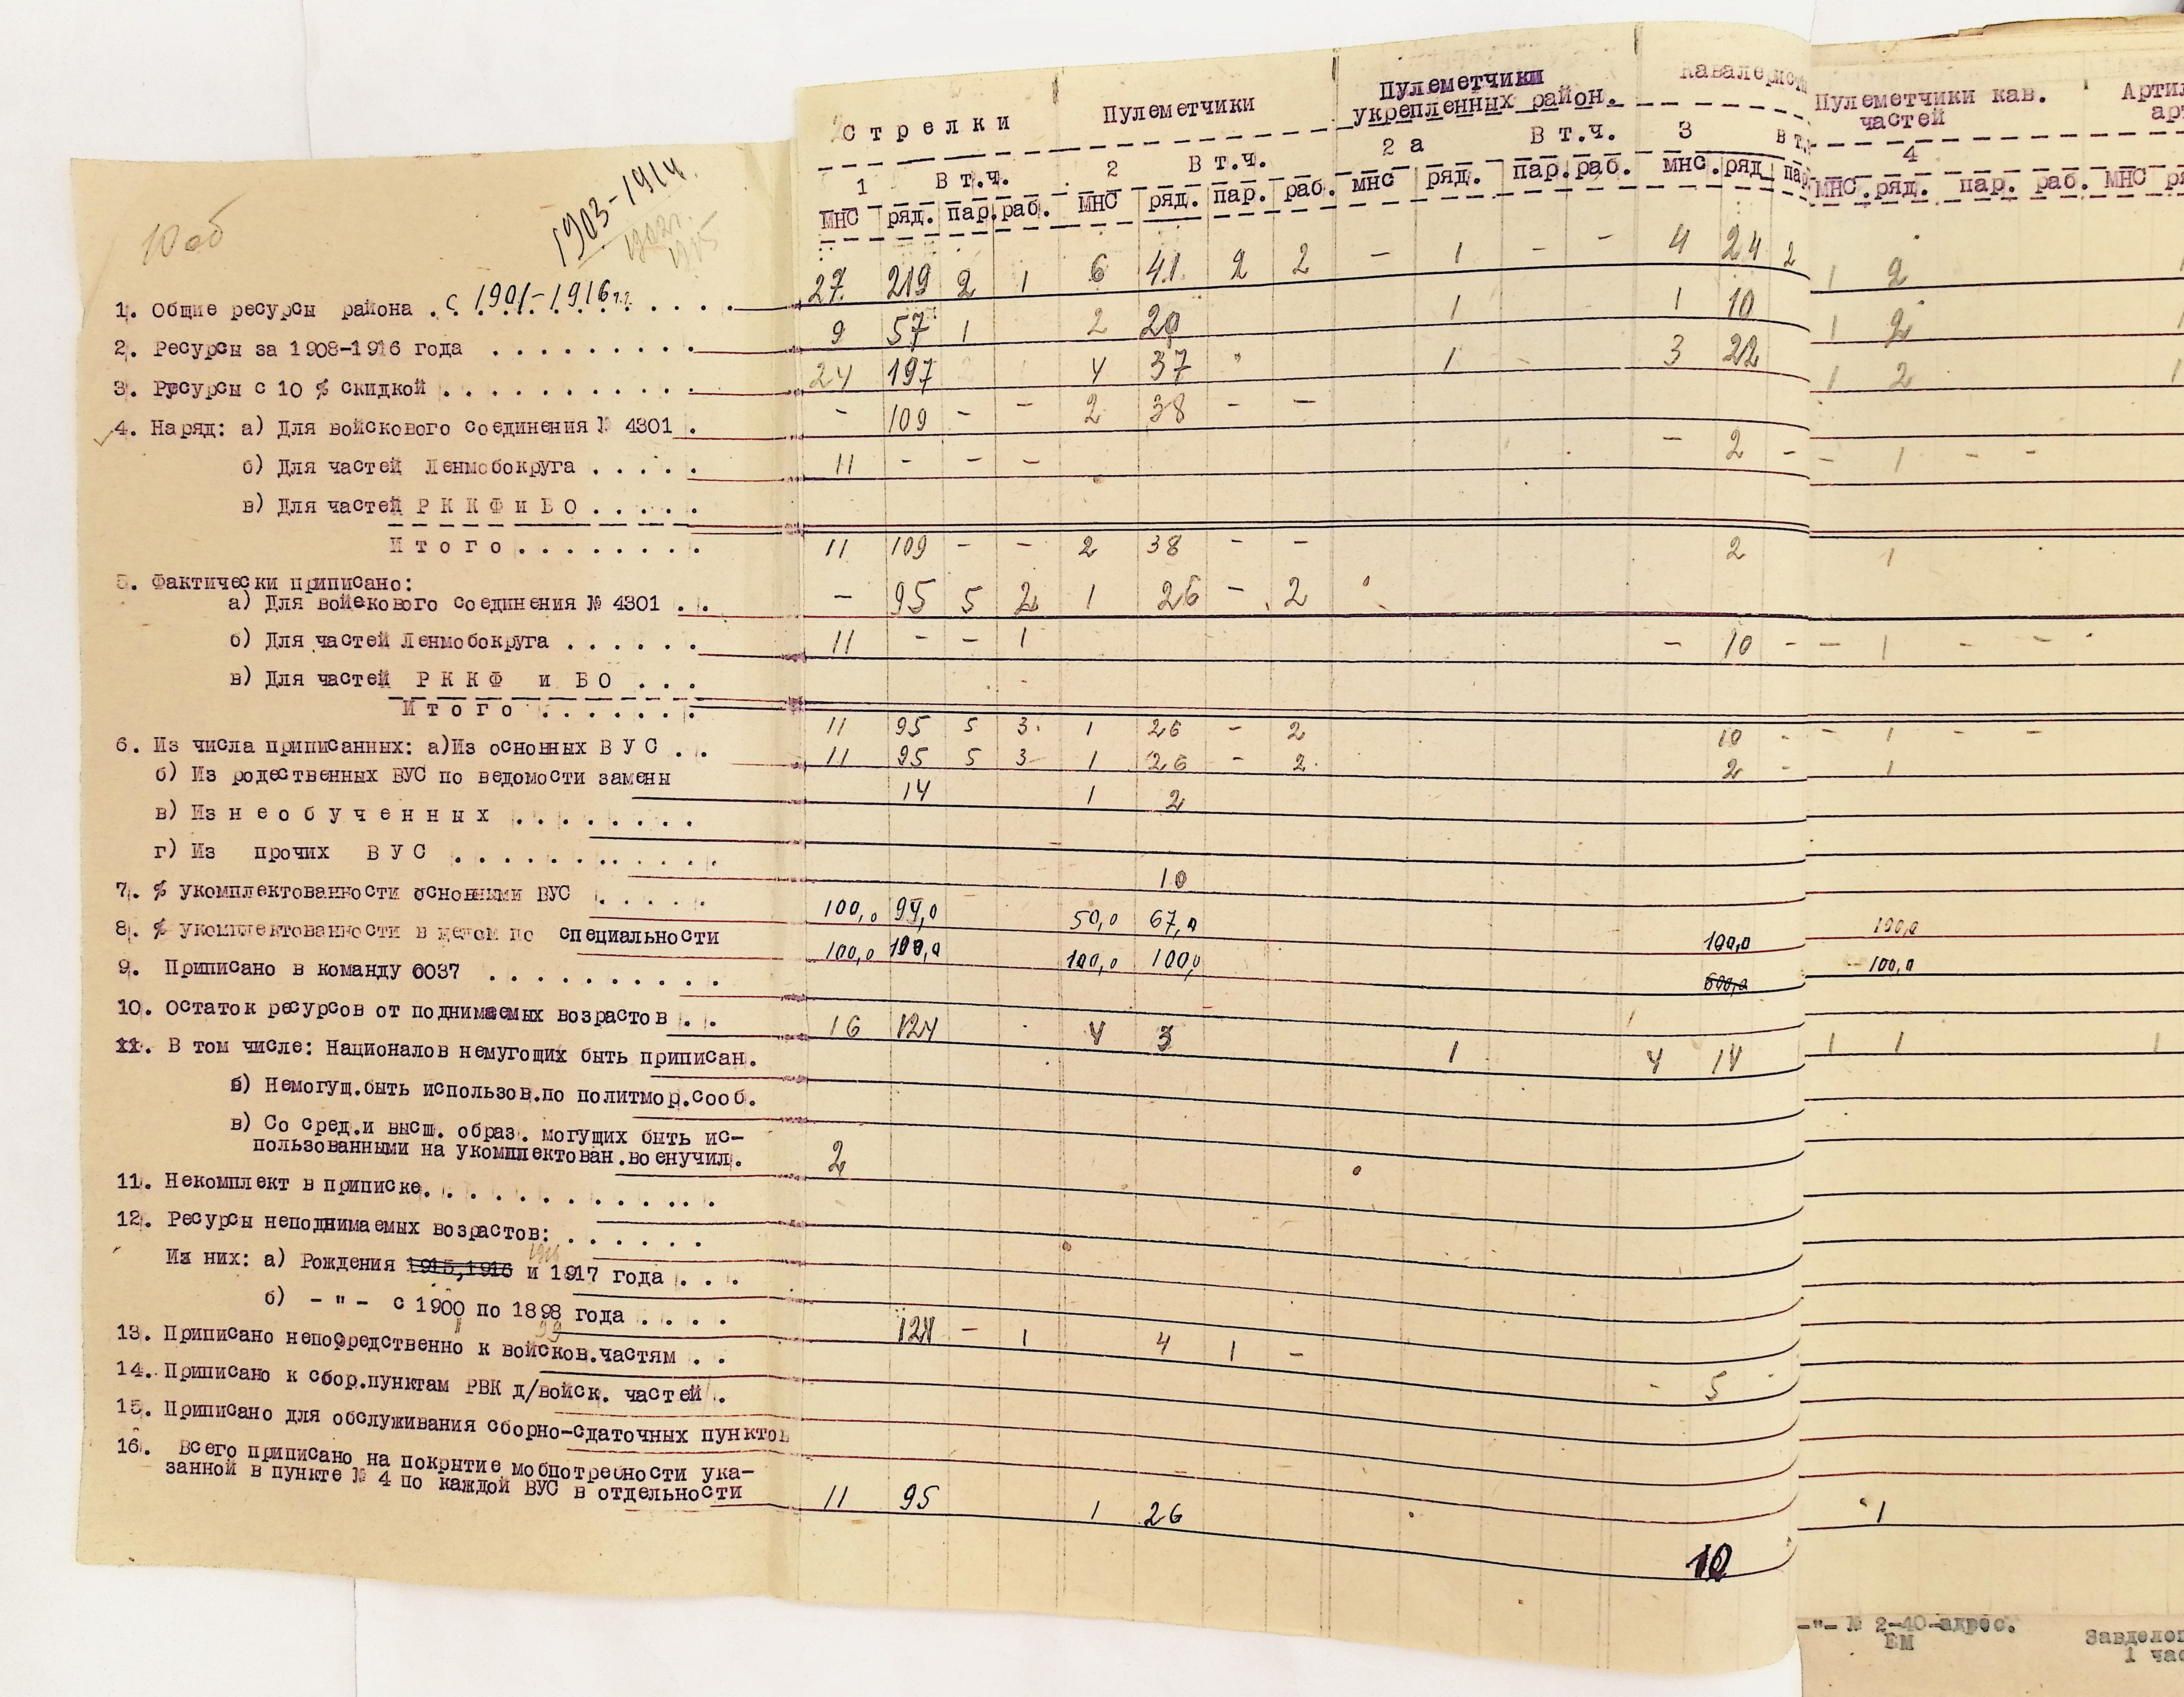 10 об
1903-1914.
1902г.
1915
Стрелки Пулеметчики Пулеметчики укрепленных район. Кавалерис Пулеметчики кав. частей Артил
1 В т.ч. 2 В т.ч. 2 а В т.ч. 3 В т. 4
МНС ряд. пар. раб. МНС ряд. пар. раб. МНС ряд. пар. раб. МНС ряд. пар. МНС ряд. пар. раб. МНС ря
1. Общие ресурсы района . с 1901-1916г.г. . . . . 27 219 2 1 6 41 2 2 - 1 - - 4 24 2 1 2 1
2. Ресурсы за 1908-1916 года . . . . . . . . . 9 57 1 2 20 1 1 10 1 2 1
3. Ресурсы с 10 % скидкой . . . . . . . . . . 24 197 2 1 4 37 " 1 - 3 22 1 2 1
4. Наряд: а) Для войскового соединения № 4301 . - 109 - - 2 38 - -
б) Для частей Ленмобокруга . . . . . 11 - - - - 2 - - 1 - -
в) Для частей РККФ и БО . . . . .
Итого . . . . . . . . 11 109 - - 2 38 - - 2 1
5. Фактически приписано:
а) Для войскового соединения № 4301 . . - 95 5 2 1 26 - 2
б) Для частей Ленмобокруга . . . . . . 11 - - 1 - 10 - - 1 - -
в) Для частей РККФ и БО . . .
Итого . . . . . . . 11 95 5 3 1 26 - 2 10 - - 1 - -
6. Из числа приписанных: а)Из основных ВУС . . 11 95 5 3 1 26 - 2 2 - 1
б) Из родественных ВУС по ведомости замены 14 1 2
в) Из необученных . . . . . . . .
г) Из прочих ВУС . . . . . . . . . . . . 10
7. % укомплектованности основными ВУС . . . . . 100,0 94,0 50,0 67,0 100,0 100,0
8. % укомплектованности в целом по специальности 100,0 100,0 100,0 100,0 600,0 100,0
9. Приписано в команду 0037 . . . . . . . . . .
10. Остаток ресурсов от поднимаемых возрастов . . 16 124 4 3 1 4 14 1 1 1
11. В том числе: Националов немугощих быть приписан.
б) Немогущ.быть использов.по политмор.сооб.
в) Со сред.и высш. образ. могущих быть ис-
пользованными на укомплектован.военучил. 2
11. Некомплект в приписке. . . . . . . . . . . . .
12. Ресурсы неподнимаемых возрастов: . . . . . .
1916
Из них: а) Рождения 1915,1916 и 1917 года . . .
б) -"- с 1900 по 1898 года . . . .
99
13. Приписано непосредственно к войсков.частям . . 124 - 1 4 1 -
14. Приписано к сбор.пунктам РВК д/войск. частей . - 5 -
15. Приписано для обслуживания сборно-сдаточных пунктов
16. Всего приписано на покрытие мобпотребности ука-
занной в пункте № 4 по каждой ВУС в отдельности 11 95 1 26 10 1
-"- № 2-40-адрес.
ЕМ
Завделоп
1 час